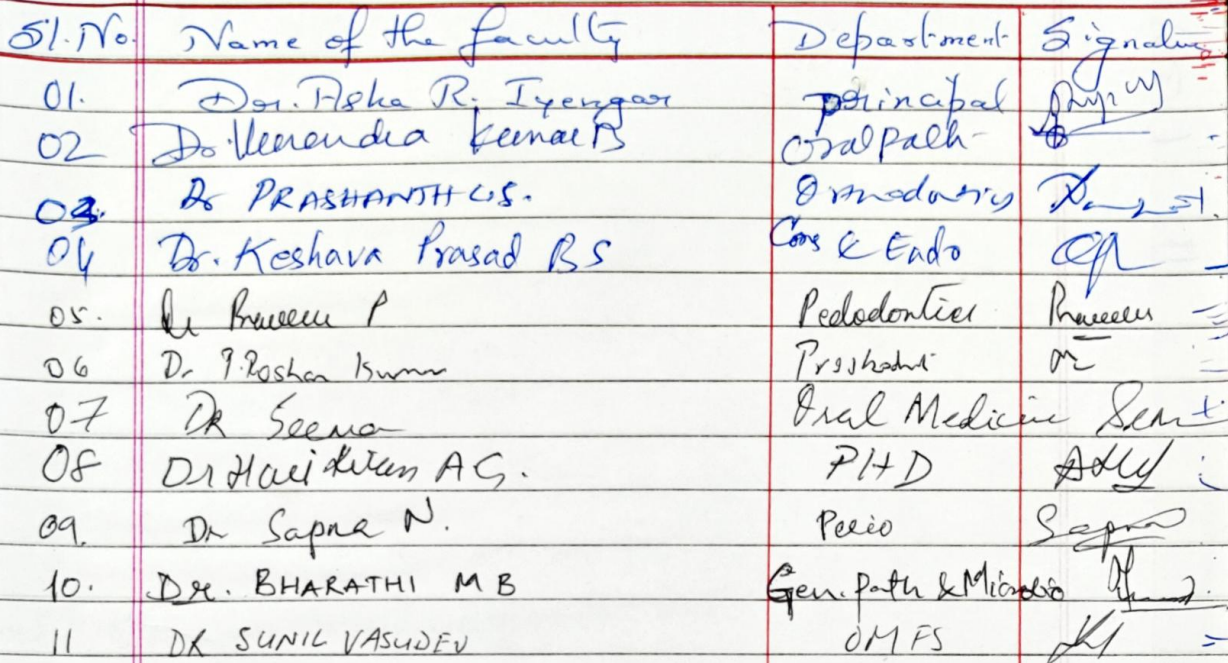 Sl.No. Name of the faculty Department Signature
01. Dr. Asha R. Iyengar principal
02 Dr. Veerendra Kumar B Oral path
03. Dr PRASHANTH C.S. Orthodontics
04 Dr. Keshava Prasad B S Cons & Endo
05. Dr Praveen P Pedodontics Praveen
06 Dr. P. Roshan Kumar Prosthodont
07 DR Seema Oral Medicine
08 Dr Hari Kiran A G. PHD
09. Dr Sapna N. Perio Sapna
10. Dr. BHARATHI M B Gen. path & Microbio
11 DR SUNIL VASUDEV OMFS